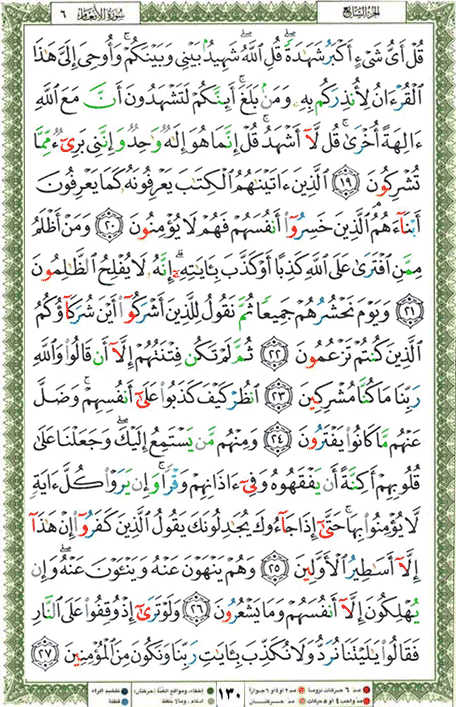 الجزء السابع سورة الأنعام ٦
قُلْ أَىُّ شَىْءٍ أَكْبَرُ شَهَٰدَةً ۖ قُلِ ٱللَّهُ ۖ شَهِيدٌۢ بَيْنِى وَبَيْنَكُمْ ۚ وَأُوحِىَ إِلَىَّ هَٰذَا
ٱلْقُرْءَانُ لِأُنذِرَكُم بِهِۦ وَمَنۢ بَلَغَ ۚ أَئِنَّكُمْ لَتَشْهَدُونَ أَنَّ مَعَ ٱللَّهِ
ءَالِهَةً أُخْرَىٰ ۚ قُل لَّآ أَشْهَدُ ۚ قُلْ إِنَّمَا هُوَ إِلَٰهٌ وَٰحِدٌ وَإِنَّنِى بَرِىٓءٌ مِّمَّا
تُشْرِكُونَ ﴿١٩﴾ ٱلَّذِينَ ءَاتَيْنَٰهُمُ ٱلْكِتَٰبَ يَعْرِفُونَهُۥ كَمَا يَعْرِفُونَ
أَبْنَآءَهُمُ ٱلَّذِينَ خَسِرُوٓا۟ أَنفُسَهُمْ فَهُمْ لَا يُؤْمِنُونَ ﴿٢٠﴾ وَمَنْ أَظْلَمُ
مِمَّنِ ٱفْتَرَىٰ عَلَى ٱللَّهِ كَذِبًا أَوْ كَذَّبَ بِـَٔايَٰتِهِۦٓ ۗ إِنَّهُۥ لَا يُفْلِحُ ٱلظَّٰلِمُونَ
﴿٢١﴾ وَيَوْمَ نَحْشُرُهُمْ جَمِيعًا ثُمَّ نَقُولُ لِلَّذِينَ أَشْرَكُوٓا۟ أَيْنَ شُرَكَآؤُكُمُ
ٱلَّذِينَ كُنتُمْ تَزْعُمُونَ ﴿٢٢﴾ ثُمَّ لَمْ تَكُن فِتْنَتُهُمْ إِلَّآ أَن قَالُوا۟ وَٱللَّهِ
رَبِّنَا مَا كُنَّا مُشْرِكِينَ ﴿٢٣﴾ ٱنظُرْ كَيْفَ كَذَبُوا۟ عَلَىٰٓ أَنفُسِهِمْ ۚ وَضَلَّ
عَنْهُم مَّا كَانُوا۟ يَفْتَرُونَ ﴿٢٤﴾ وَمِنْهُم مَّن يَسْتَمِعُ إِلَيْكَ ۖ وَجَعَلْنَا عَلَىٰ
قُلُوبِهِمْ أَكِنَّةً أَن يَفْقَهُوهُ وَفِىٓ ءَاذَانِهِمْ وَقْرًا ۚ وَإِن يَرَوْا۟ كُلَّ ءَايَةٍ
لَّا يُؤْمِنُوا۟ بِهَا ۚ حَتَّىٰٓ إِذَا جَآءُوكَ يُجَٰدِلُونَكَ يَقُولُ ٱلَّذِينَ كَفَرُوٓا۟ إِنْ هَٰذَآ
إِلَّآ أَسَٰطِيرُ ٱلْأَوَّلِينَ ﴿٢٥﴾ وَهُمْ يَنْهَوْنَ عَنْهُ وَيَنْـَٔوْنَ عَنْهُ ۖ وَإِن
يُهْلِكُونَ إِلَّآ أَنفُسَهُمْ وَمَا يَشْعُرُونَ ﴿٢٦﴾ وَلَوْ تَرَىٰٓ إِذْ وُقِفُوا۟ عَلَى ٱلنَّارِ
فَقَالُوا۟ يَٰلَيْتَنَا نُرَدُّ وَلَا نُكَذِّبَ بِـَٔايَٰتِ رَبِّنَا وَنَكُونَ مِنَ ٱلْمُؤْمِنِينَ ﴿٢٧﴾
١٣٠